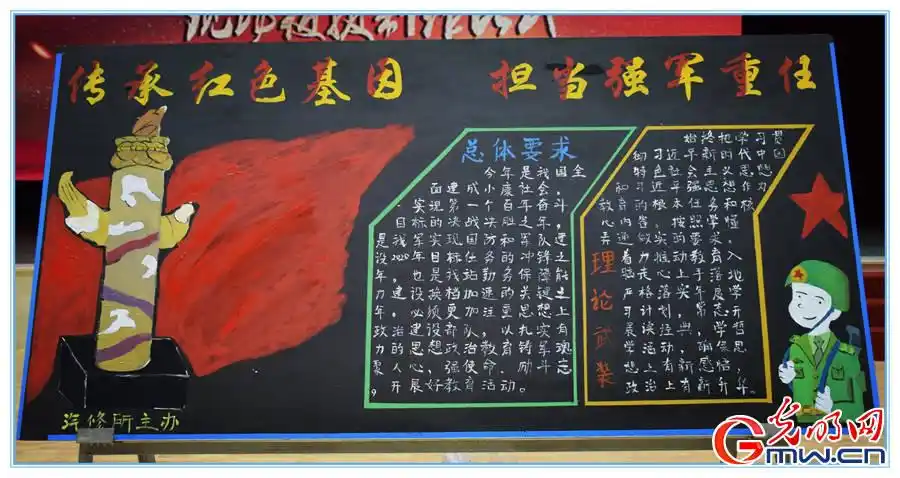 传承红色基因 担当强军重任
总体要求
今年是我国全
面建成小康社会,
实现第一个百年奋斗
目标的决战决胜之年,
是我军实现国防和军队建
设年目标任务的冲锋之
年,也是我站勤务保障能
力建设换档加速的关键之
年。必须更加注重思想上
政治建设部队,以实有
力的思想政治教育铸军魂
聚人心,强使命,励斗志
,开展好教育活动。
理论武装
始终把学习贯
彻习近平新时代中国
特色社会主义思想
和习近平强军思想作为
教育的根本任务和核
心内容,按照学懂
弄通做实的要求,
着力推动教育入
脑走心上手落地
严格落实年度学
习计划,常态开
展读经典,学哲
学活动,确保思
想上有新感悟
政治上有新升华。
汽修所主办
光明网
GMW.cn